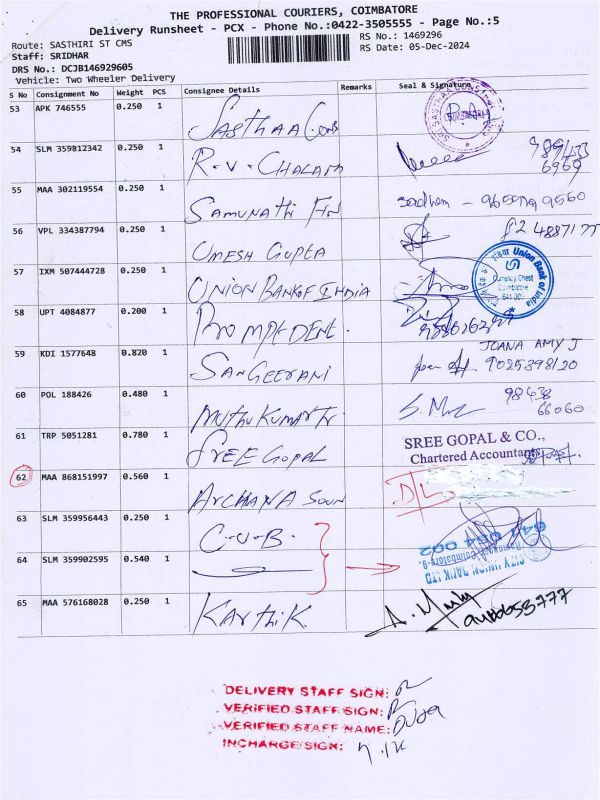 THE PROFESSIONAL COURIERS, COIMBATORE
Delivery Runsheet - PCX - Phone No.:0422-3505555 - Page No.:5
Route: SASTHIRI ST CMS
RS No.: 1469296
Staff: SRIDHAR
RS Date: 05-Dec-2024
DRS No.: DCJB146929605
Vehicle: Two Wheeler Delivery
S No Consignment No Weight PCS Consignee Details Remarks Seal & Signature
53 APK 746555 0.250 1 SASTHAA CONS
54 SLM 359812342 0.250 1 R.V. CHALAM
55 MAA 302119554 0.250 1 SAMUNATHI FIN
56 VPL 334387794 0.250 1 UMESH GUPTA
57 IXM 507444728 0.250 1 UNION BANK OF INDIA Union Bank of India Currency Chest Coimbatore
58 UPT 4084877 0.200 1 PROMPT DENT.
59 KDI 1577648 0.820 1 SANGEERANI JOANA AMY J 9025398120
60 POL 188426 0.480 1 MUTHU KUMAR TR 98438 66060
61 TRP 5051281 0.780 1 SREE GOPAL SREE GOPAL & CO., Chartered Accountants
62 MAA 868151997 0.560 1 ARCHANA SOUN D/L
63 SLM 359956443 0.250 1 C.U.B.
64 SLM 359902595 0.540 1 CITY UNION BANK LTD 641 002
65 MAA 576168028 0.250 1 KARTHIK
DELIVERY STAFF SIGN:
VERIFIED STAFF SIGN:
VERIFIED STAFF NAME:
INCHARGE SIGN: